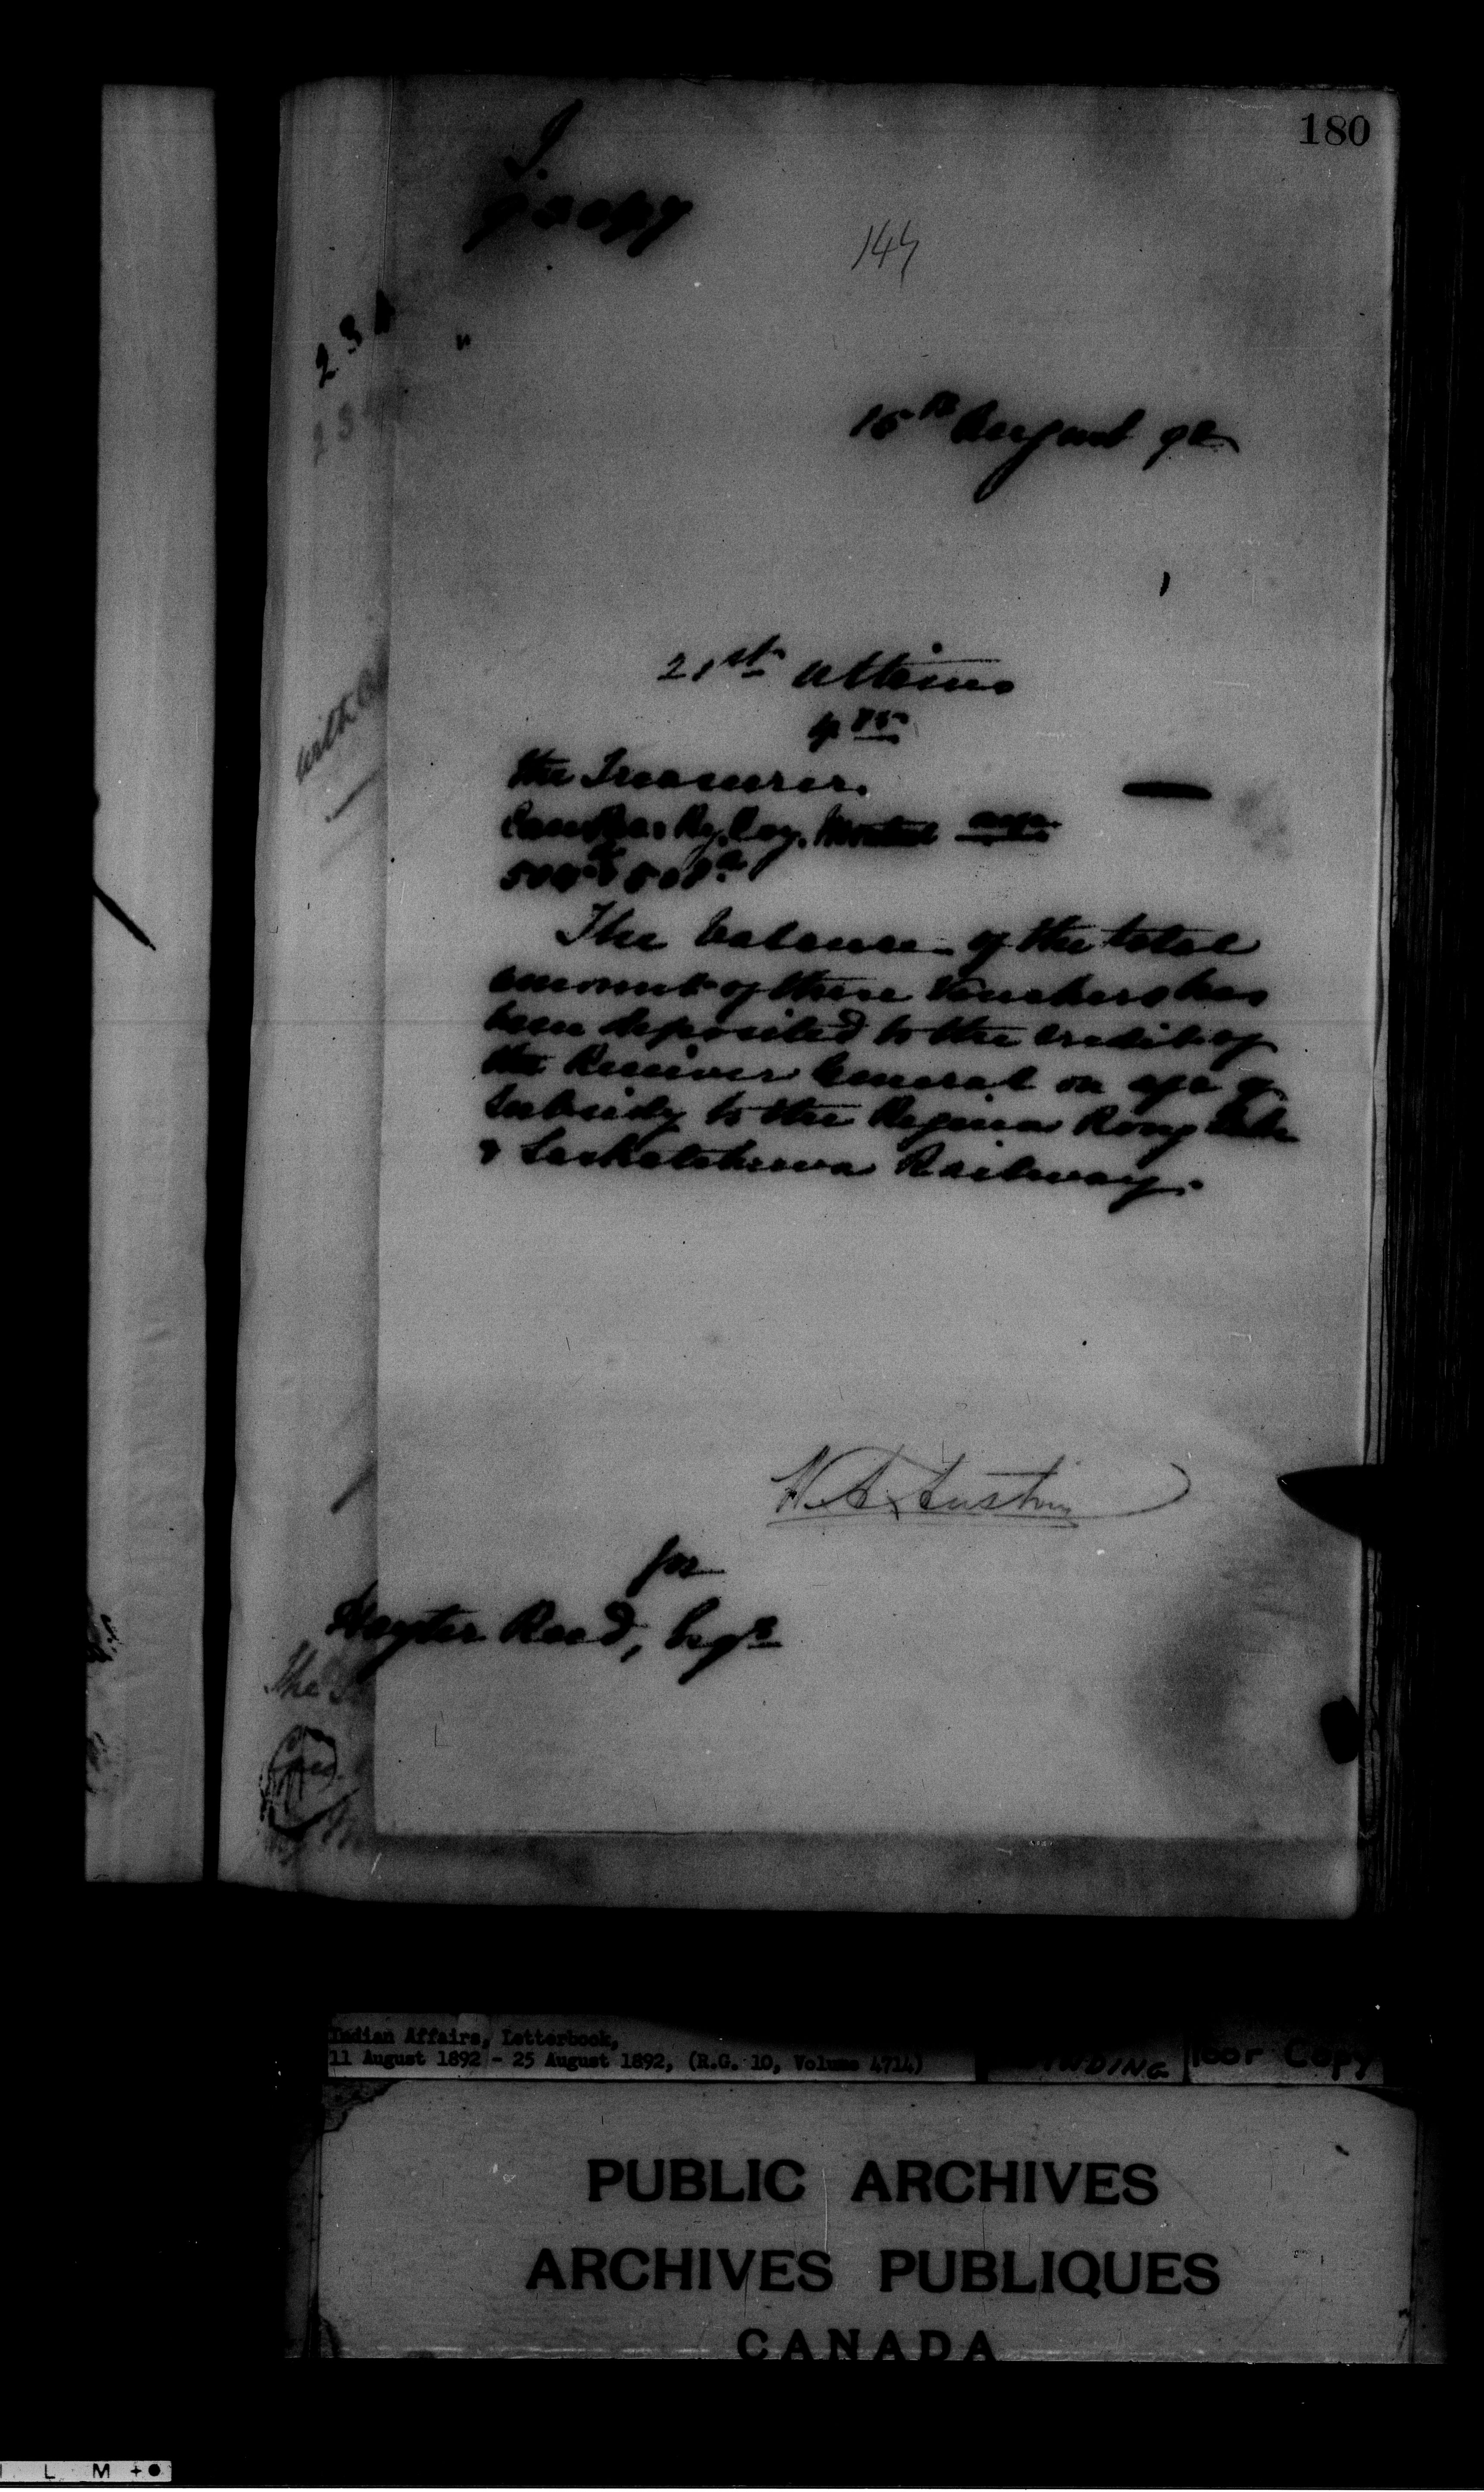 180
144
15th August 92
21st ultimo
4 85
the Treasurer.
Can. Pac. Ry. Coy. Montreal
The balance of the total
amount of these Vouchers has
been deposited to the credit of
the Receiver General on a/c of
Subsidy to the Regina Long Lake
& Saskatchewan Railway.
W. A. Austin
for
Hayter Reed, Esqr
The
Indian Affairs, Letterbook,
11 August 1892 - 25 August 1892, (R.G. 10, Volume 4714)
Poor Copy
PUBLIC ARCHIVES
ARCHIVES PUBLIQUES
CANADA
L M